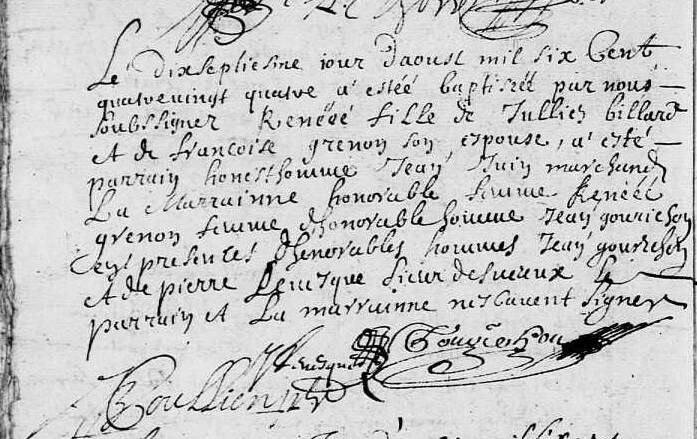 Le dixseptiesme jour daoust mil six Cent
quatrevingt quatre a estéé baptiséé par nous
soubssigner Renéé fille de Jullien billard
et de francoise grenon son espouse, a esté
parrain honesthomme Jean Juin marchand
La Marrainne honorable femme Renéé
grenon femme dhonorable homme Jean gourichon
eyt presences dhonorables hommes Jean gourichon
et de pierre Levesque sieur Le
parrain et La marrainne nescavent signer
PLevesque Gourichon